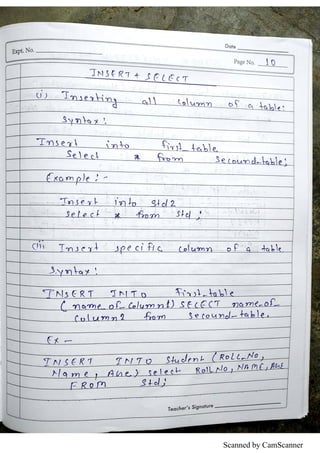 Date
Expt. No.
Page No. 10
INSERT + SELECT
(i) Inserting all column of a table:
Syntax:
Insert into first_table
Select * from Secound_table;
Example: -
Insert into Std2
Select * from Std;
(ii) Insert specific column of a table
Syntax:
INSERT INTO first_table
(name_of_column1) SELECT name_of_
Column2 from secound_table.
Ex -
INSERT INTO Student (Roll_No,
Name, Age) select Roll No, NAME, Age
FROM Std;
Teacher's Signature
Scanned by CamScanner